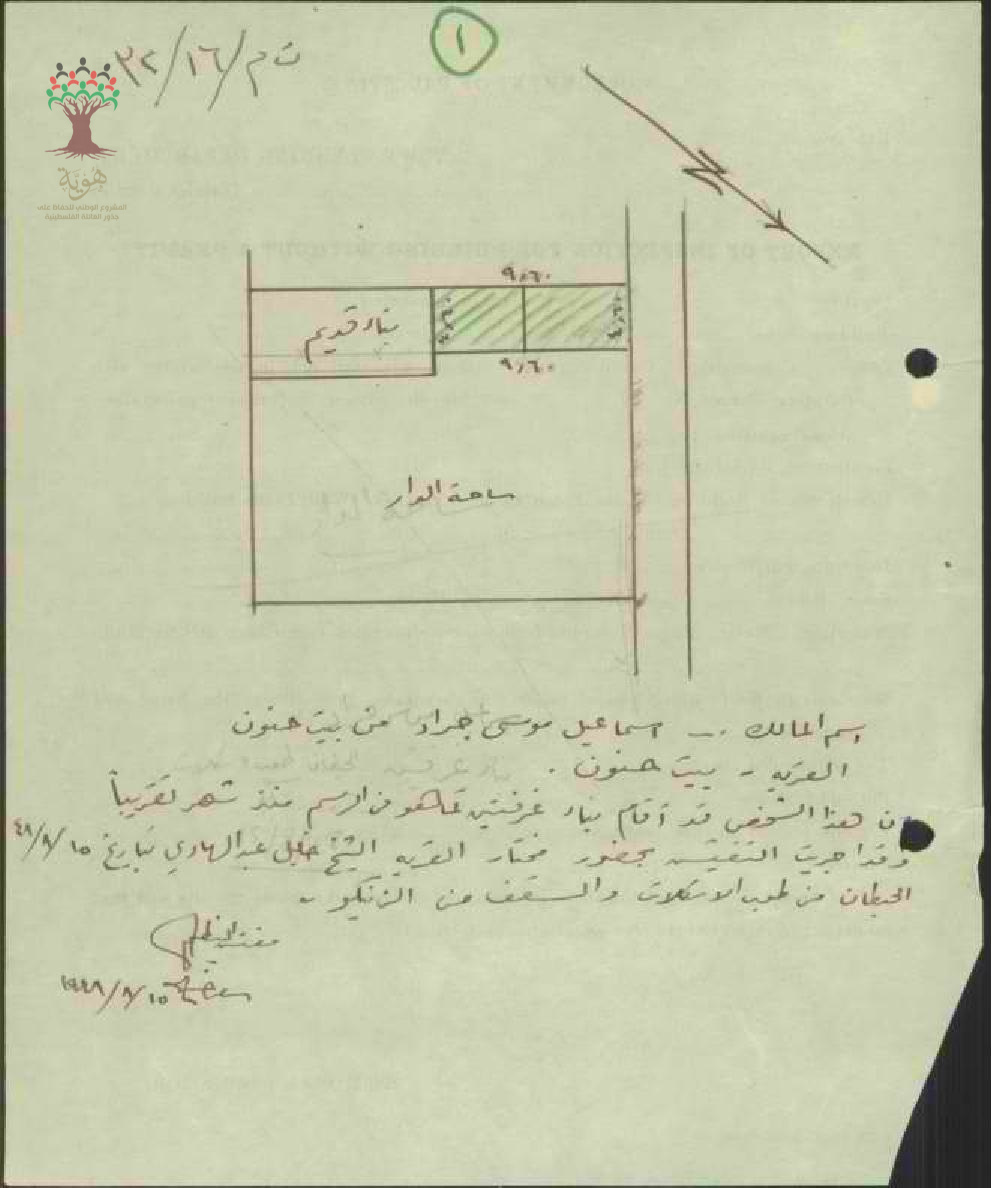 ١
ت م/١٦/٣٢
هوية
المشروع الوطني للحفاظ على
جذور العائلة الفلسطينية
N
٩,٦٠
بناء قديم
٤,٦٠
٤,٦٠
٩,٦٠
ساحة الدار
اسم المالك .- اسماعيل موسى جراد من بيت حنون
القريه - بيت حنون .
ان هذا الشخص قد أقام بناء غرفتين كما هو في الرسم منذ شهر تقريباً
وقد اجريت التفتيش بحضور مختار القريه الشيخ خليل عبد الهادي بتاريخ ١٥/٨/٤٨
الحيطان من طوب الاسكلات والسقف من الزنكو .
مفتش التنظيم
١٥/٨/١٩٤٨